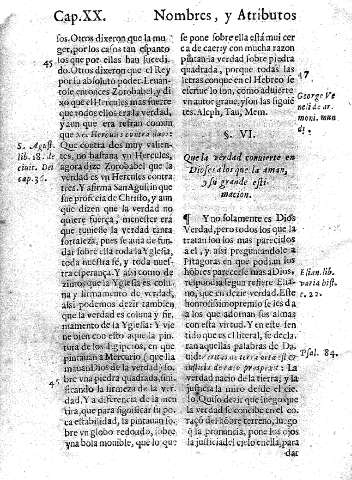 Cap.XX. Nombres, y Atributos
sos. Otros dizeron que la mu
ger, por los casos tan espanto
sos que por ellas han sucedi-
do. Otros dizeron que el Rey
por su absoluto poder. Levan-
tose entonces Zorobabel, y di
xo que el Hercules mas fuerte
que todos ellos era la verdad,
y aun que era refran comun
que Ne Hercules contra duos:
Que contra dos muy valien-
tes, no bastava vn Hercules,
agora dize Zorobabel que la
verdad es vn Hercules contra
tres. Y afirma San Agustin que
fue profecia de Christo, y aun
que dizen que la verdad no
quiere fuerça, menester era
que tuuiesse la verdad tanta
fortaleza, pues se auia de fun-
dar sobre ella toda la Yglesia,
toda nuestra fè, y toda nue-
stra esperança. Y assi como de-
zimos que la Yglesia es colu-
na y firmamento de la verdad,
assi podemos dezir tambien
que la verdad es coluna y fir-
mamento de la Yglesia: Y vie
ne bien con esto aque la pin-
tura de los Egipcios, en que
pintauan a Mercurio (que lla
mauan Dios de la verdad) so-
bre vna piedra quadrada, sini-
ficando la firmeza de la ver-
dad. Y a diferencia de la men
tira, que para significar su po-
ca estabilidad, la pintauan so-
bre vn globo redondo, sobre
vna bola mouible, que lo que
45
S. Agost.
lib. 18. de
ciuit. Dei
cap. 36.
se pone sobre ella està mui cer
ca de caer, y con mucha razon
pintan la verdad sobre piedra
quadrada, porque todas las
letras con que en el Hebreo se
escriue lo son, como aduierte
vn autor graue, y son las siguie
tes. Aleph, Tau, Mem.
§. VI.
Que la verdad conuierte en
Dioses a los que la aman,
y su grande esti-
macion.
¶ Y no solamente es Dios
Verdad, pero todos los que la
tratan son los mas parecidos
a el, y assi preguntandole a
Pitagoras en que podian los
hombres parecerse mas a Dios,
respondio segun refiere Elia-
no, que en dezir verdad. Este
honrosissimo premio se les da
a los que adornan sus almas
con esta virtud. Y en este sen
tido que es el literal, se decla-
ran aquellas palabras de Da-
uid: Veritas de terra orta est et
iustitia de cœlo prospexit: La
verdad nacio de la tierra, y la
justicia la miro desde el cie-
lo. Quiso dezir que luego que
la verdad se concibe en el co-
raçon del hombre terreno, luego
q̃ la pronuncia, pone los ojos
la justicia del cielo en ella, para
dar
47
George Ve
neti de ar
moni. mun
di
Elian. lib.
varia hist.
c. 22.
Psal. 84.